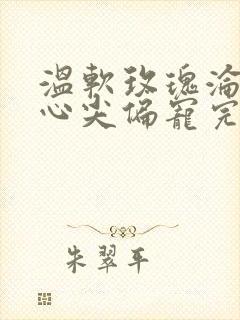 温軟玫瑰淪
心尖偏寵完
朱翠平